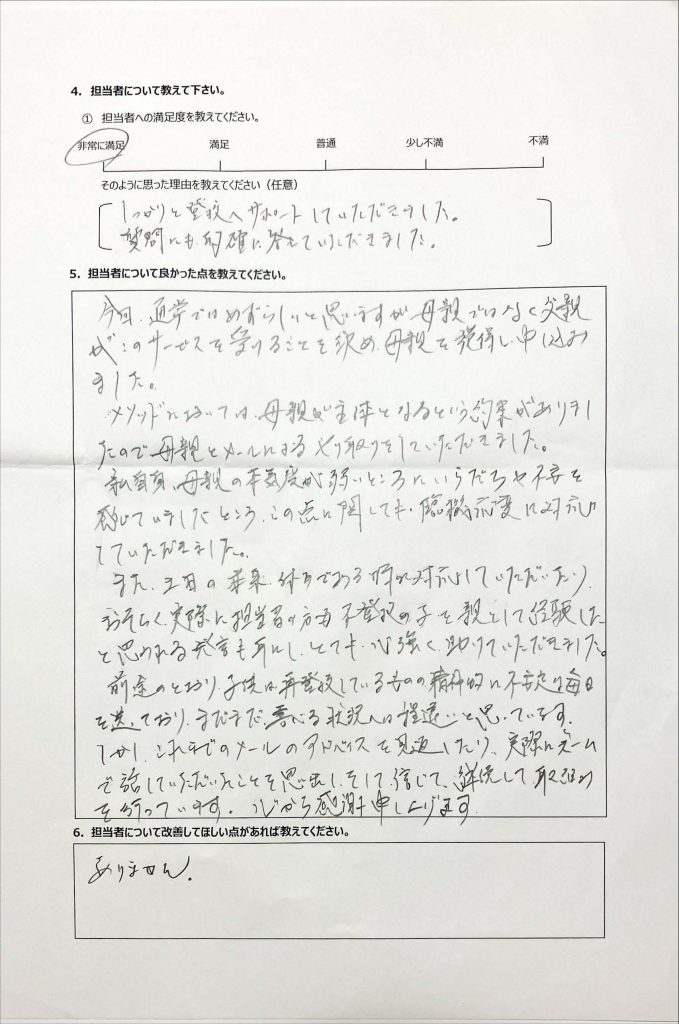 4. 担当者について教えて下さい。
① 担当者への満足度を教えてください。
非常に満足 満足 普通 少し不満 不満
そのように思った理由を教えてください（任意）
しっかりと登校へサポートしていただきました。
質問にも的確に答えていただきました。
5. 担当者について良かった点を教えてください。
今回、通常ではめずらしいと思いますが母親ではなく父親
がこのサービスを受けることを決め、母親を説得し、申し込み
ました。
メソッドにおいては、母親が主体となるという約束がありまし
たので母親とメールによるやり取りをしていただきました。
私自身、母親の本気度が弱いところにいらだちや不安を
感じていましたところ、この点に関しても、臨機応変に対応し
ていただきました。
また、土日の本来、休みである時に対応していただいたり、
おそらく、実際に担当者の方も不登校の子を親として経験した
と思われる発言も耳にし、とても心強く助けていただきました。
前途のとおり、子供は再登校しているものの精神的に不安定な毎日
を送っており、まだまだ、喜べる状況へは程遠いと思っています。
しかし、これまでのメールのアドバイスを見返したり、実際にズーム
で話していただいたことを思い出し、そして、信じて、継続して取り組み
を行っています。心から感謝申し上げます。
6. 担当者について改善してほしい点があれば教えてください。
ありません。